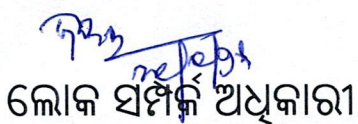 ଲୋକ ସମ୍ପର୍କ ଅଧିକାରୀ